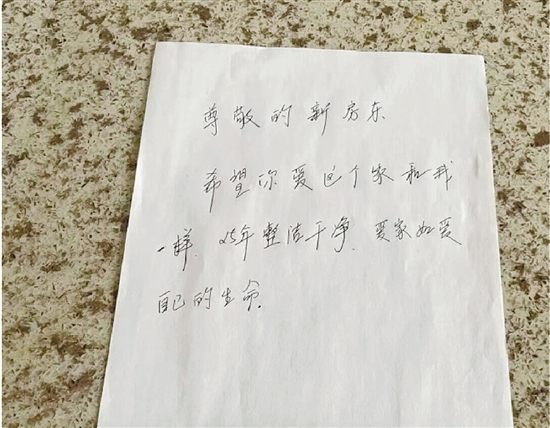 尊敬的新房东
希望你爱这个家和我
一样.25年整洁干净.爱家如爱
自己的生命.